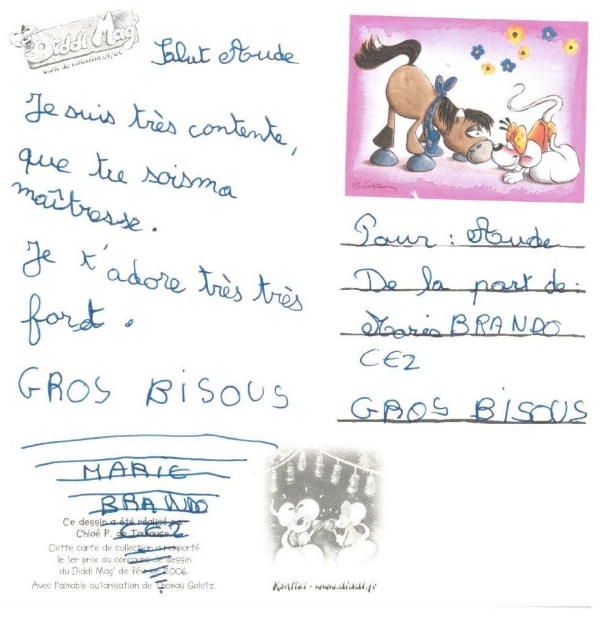 Diddl Mag'
Salut Aude
Je suis très contente,
que tu soisma
maîtresse.
Je t'adore très très
fort.
GROS BISOUS
MARIE
BRANDO
CE2
Ce dessin a été réalisé par
Chloé P. de Toulouse.
Cette carte de collection a remporté
le 1er prix du concours de dessin
du Diddl Mag' de février 2006.
Avec l'aimable autorisation de Thomas Goletz.
Pour : Aude
De la part de :
Marie BRANDO
CE2
GROS BISOUS
Kontiki - www.diddl.fr